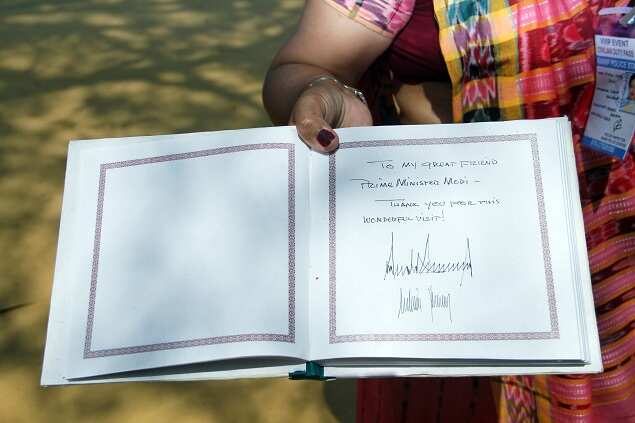 TO MY GREAT FRIEND
PRIME MINISTER MODI -
THANK YOU FOR THIS
WONDERFUL VISIT!
VVIP EVENT